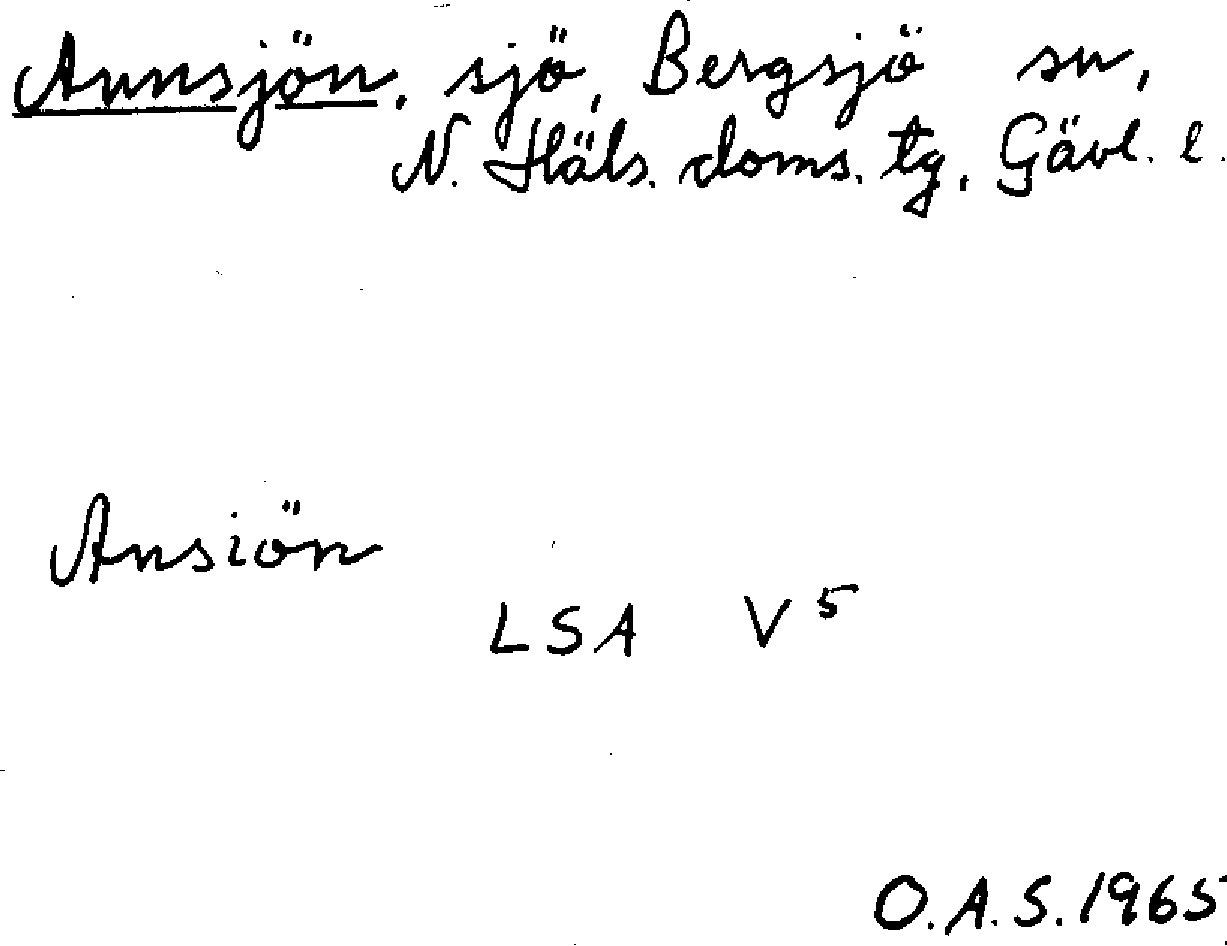 Annsjön, sjö, Bergsjö sn,
N. Häls. doms. tg, Gävl. l.
Ansiön
LSA V⁵
O.A.S. 1965